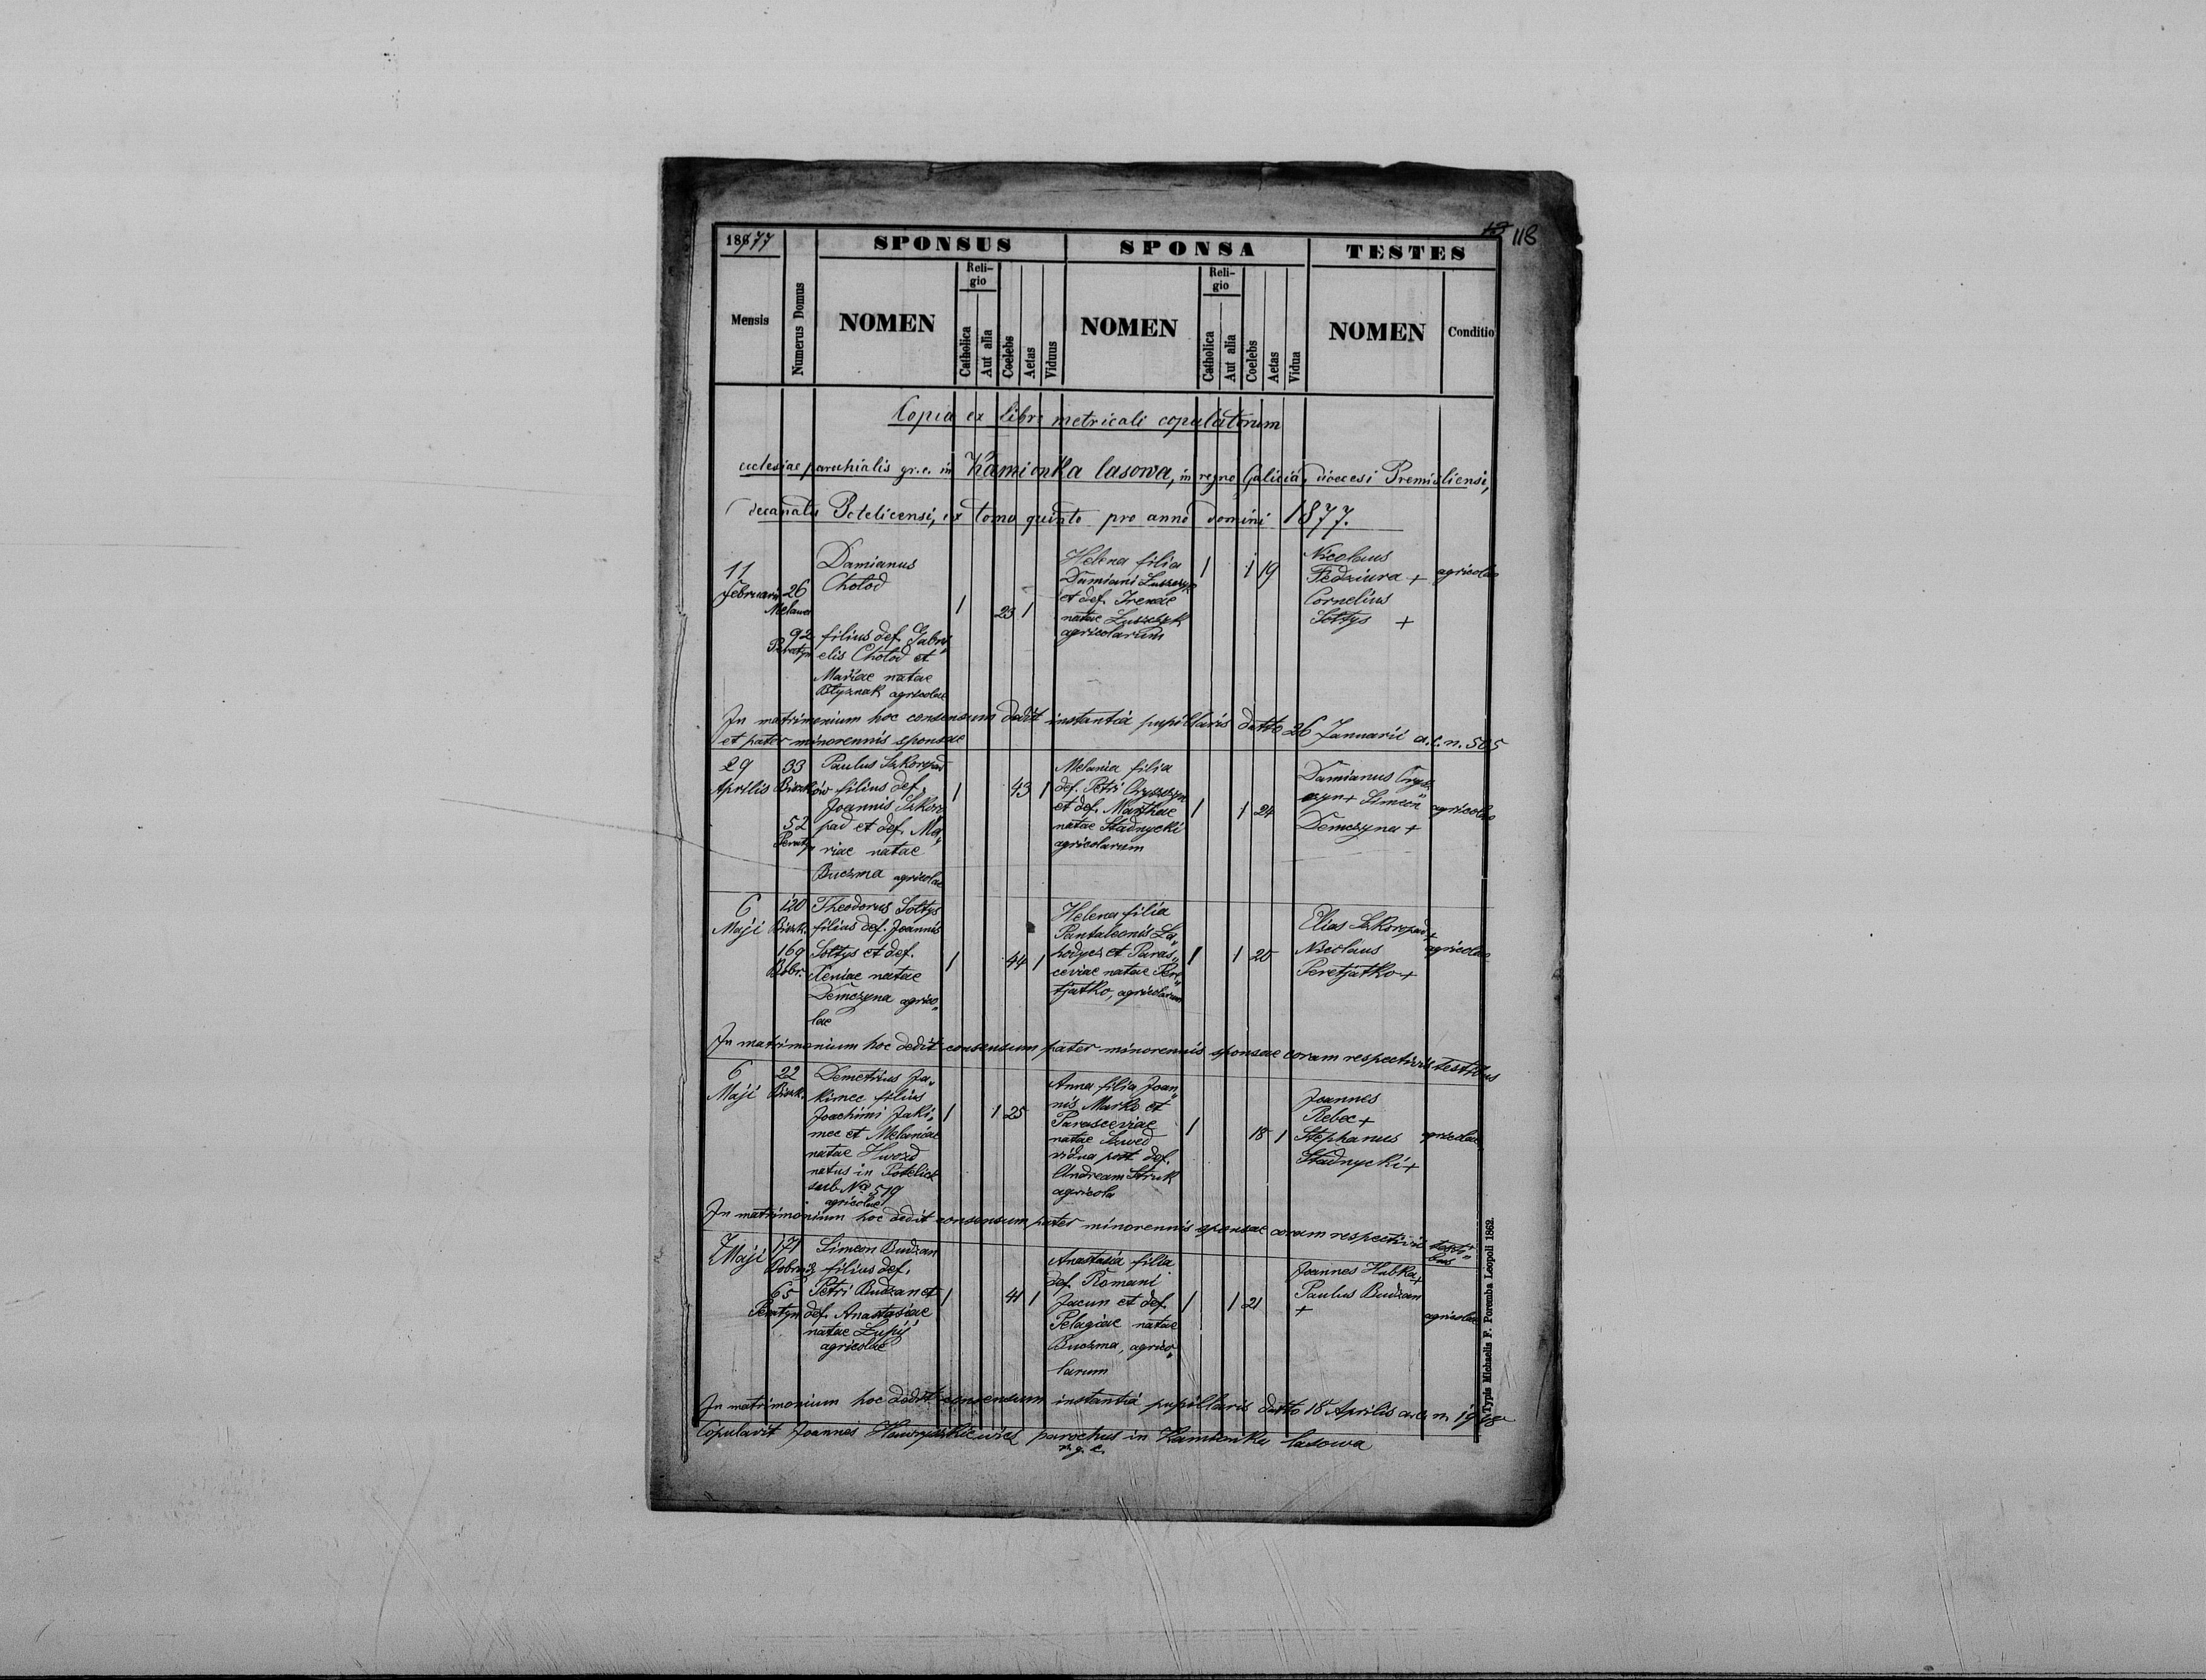 13 118
1877
SPONSUS
SPONSA
TESTES
Mensis
Numerus Domus
NOMEN
Religio
Catholica
Aut alia
Coelebs
Aetas
Viduus
NOMEN
Religio
Catholica
Aut alia
Coelebs
Aetas
Vidua
NOMEN
Conditio
Copia ex libro metricali copulatorum
ecclesiae parochialis gr. c. in Kamionka lasowa, in regno Galiciae, dioecesi Premisliensi,
decanatu Potelicensi, ex tomo quinto pro anno domini 1877.
11
Februarii
26
92
Damianus
Cholod
filius def. Gabri„
elis Cholod et
Mariae natae
agricolae
1
23 1
Helena filia
Damiani Luszczyk
et def. Irenae
natae Luszczyk
agricolarum
1
1 19
Nicolaus
Fedziura +
Cornelius
Soltys +
agricolae
In matrimonium hoc consensum dedit instantia pupillaris datto 26 Januarii a.c. n. 505
et pater minorennis sponsae
29
Aprilis
33
52
Paulus Szkoropad
filius def.
Joannis Szkoro
pad et def. Ma„
riae natae
Buczma agricolae
1
43 1
Melania filia
def. Petri Oryszczyn
et def. Marthae
natae Stadnycki
agricolarum
1
1 24
Damianus Orysz„
czyn + Simeon
Demczyna +
agricolae
6
Maji
120
Biszk.
169
Bobr.
Theodorus Soltys
filius def. Joannis
Soltys et def.
Xeniae natae
Demczyna agrico„
lae
1
44 1
Helena filia
Pantaleonis La„
hodycz et Paras„
ceviae natae Pere„
tjatko, agricolarum
1
1 20
Elias Szkoropad +
Nicolaus
Peretjatko +
agricolae
In matrimonium hoc dedit consensum pater minorennis sponsae coram respectivis testibus
6
Maji
22
Biszk.
Demetrius Ja„
kimec filius
Joachimi Jaki„
mec et Melaniae
natae Hwozd
natus in Potelicz
sub Nro 519
agricolae
1
1 25
Anna filia Joan„
nis Marko et
Parasceviae
natae Szwed
vidua post def.
Andream Struk
agricola
1
18 1
Joannes
Rebec +
Stephanus
Stadnycki +
agricolae
In matrimonium hoc dedit consensum pater minorennis sponsae coram respectivis testi„
bus
7
Maji
171
65
Peratyn
Simeon Budzan
filius def.
Petri Budzan et
def. Anastasiae
natae Lupij
agricolae
1
41 1
Anastasia filia
def. Romani
Jacun et def.
Pelagiae natae
Buczma, agrico„
larum
1
1 21
Joannes Hubka +
Paulus Budzan
+
agricolae
In matrimonium hoc dedit consensum instantia pupillaris datto 18 Aprilis a.c. n.
Copulavit Joannes parochus in Kamionka lasowa
Typis Michaelis F. Poremba Leopoli 1862.